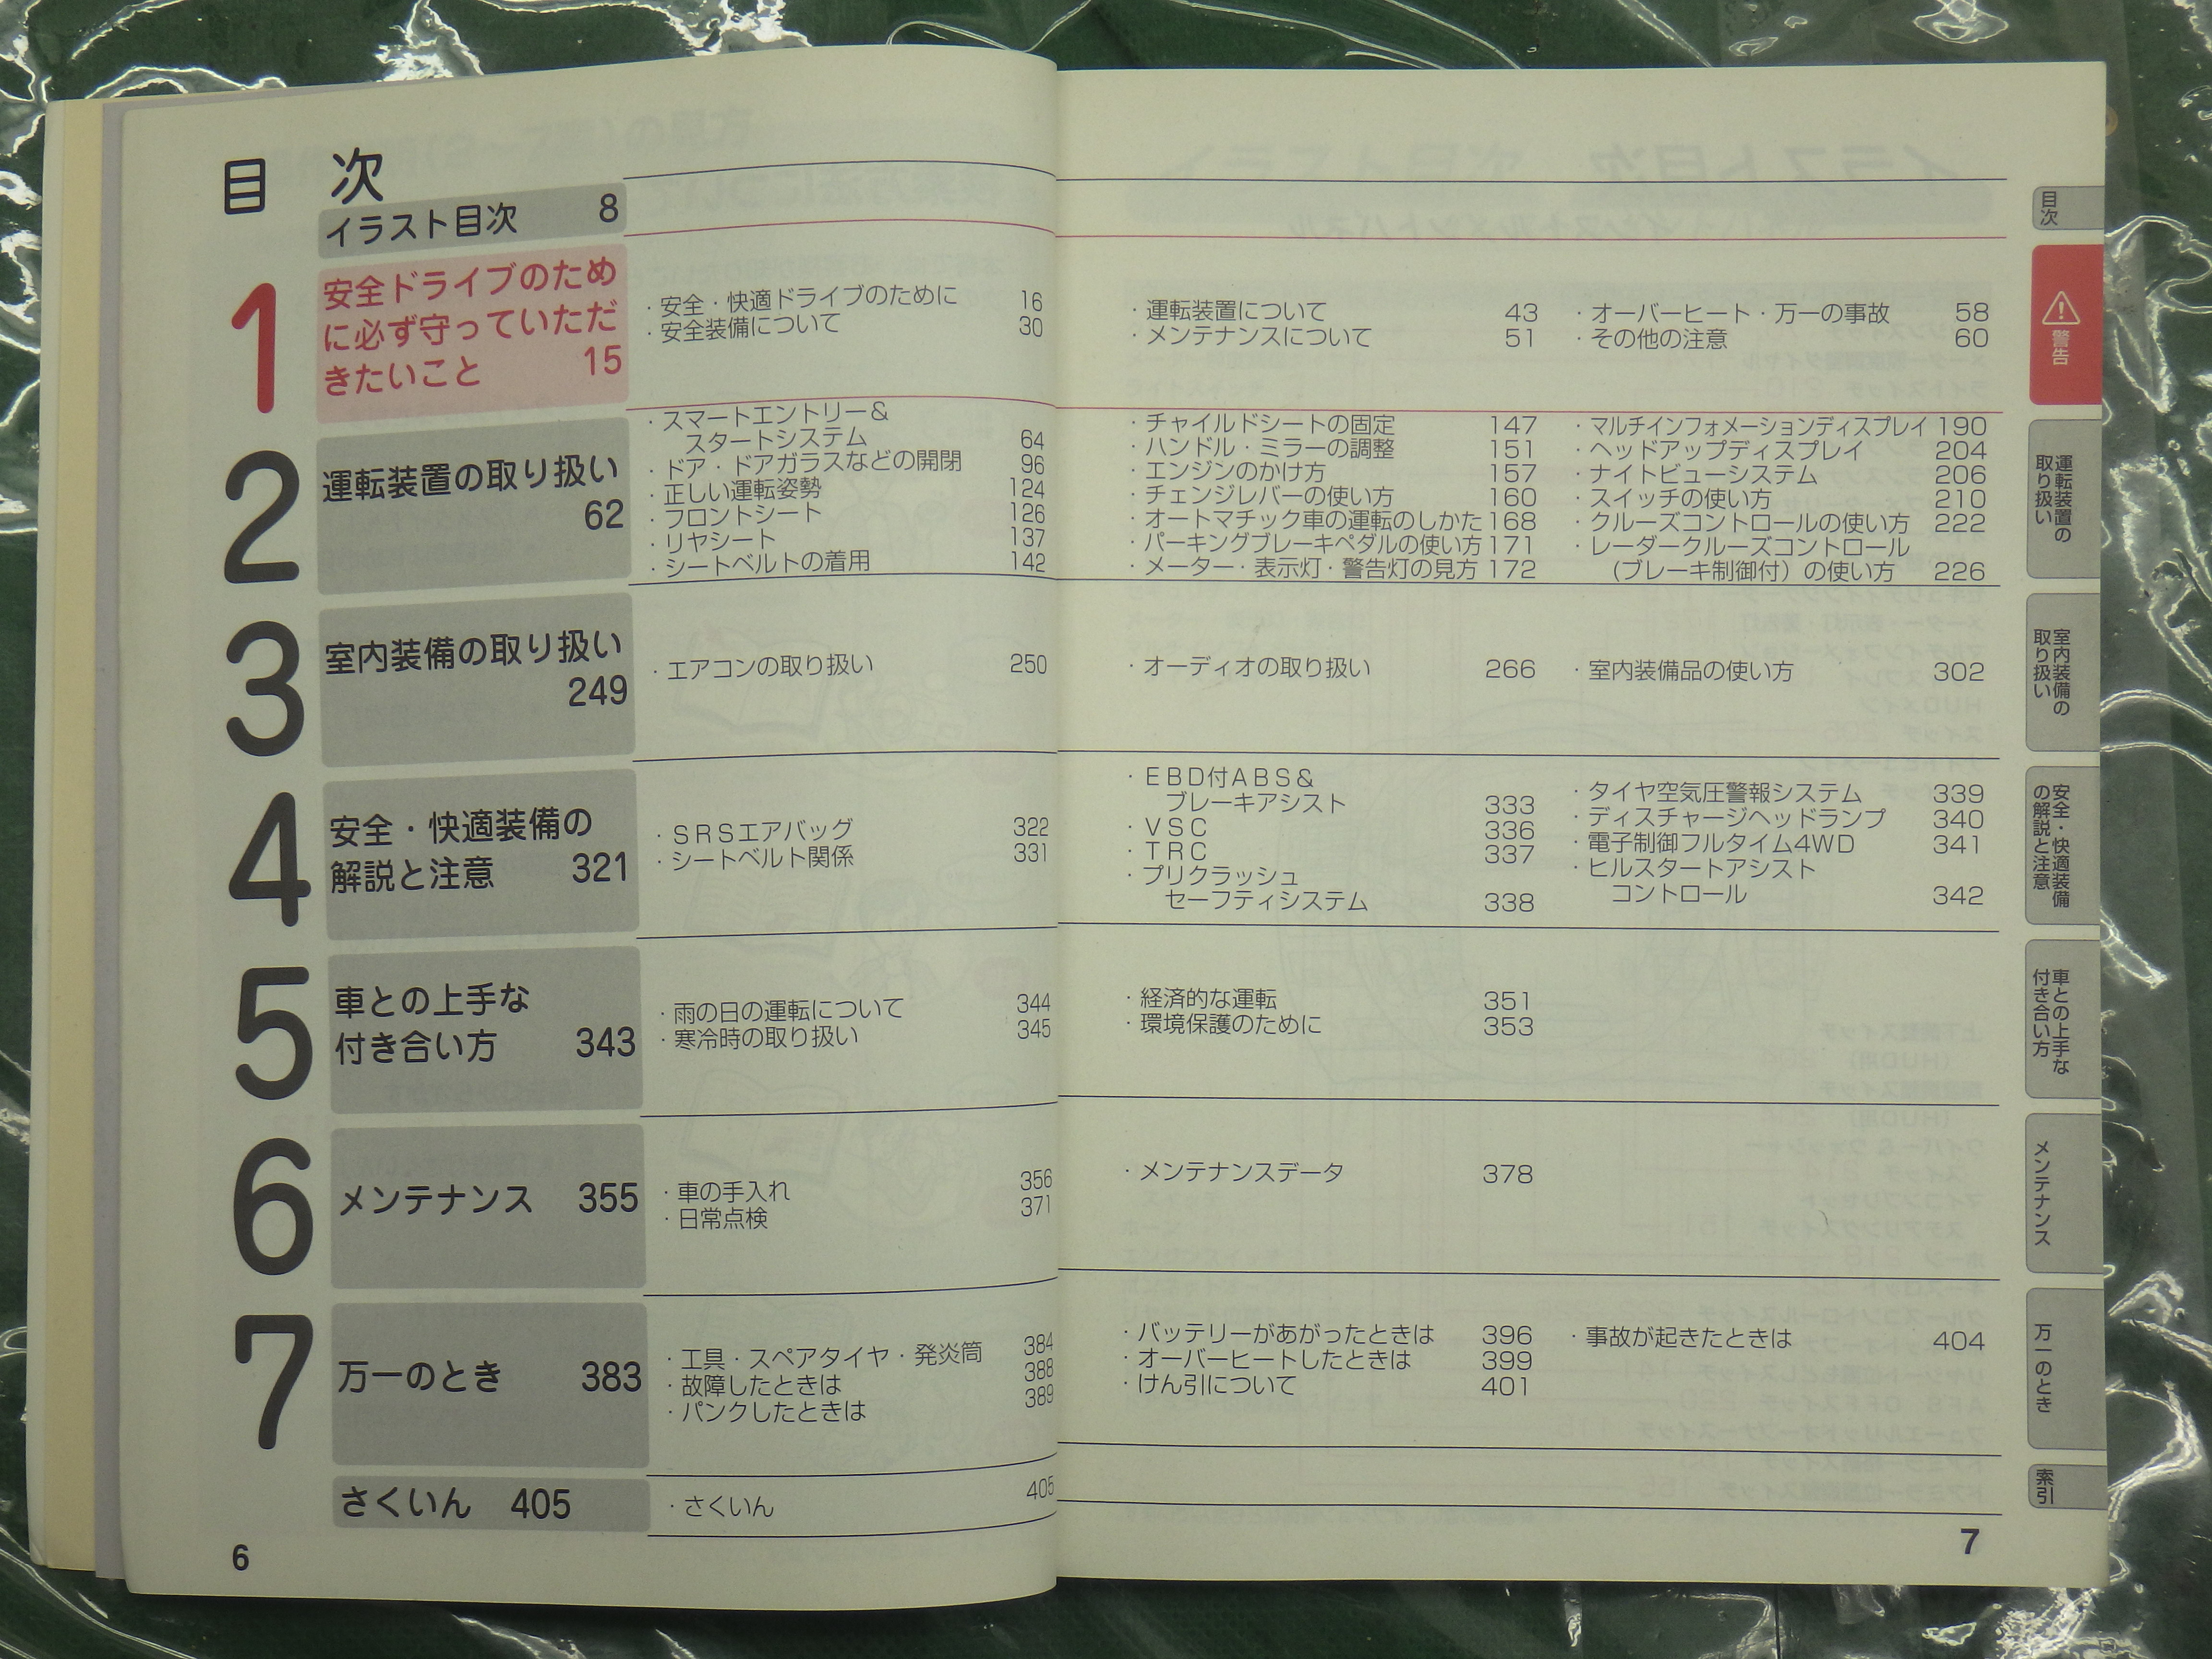 目 次
イラスト目次 8
1
安全ドライブのため
に必ず守っていただ
きたいこと 15
・安全・快適ドライブのために 16
・安全装備について 30
・運転装置について 43
・メンテナンスについて 51
・オーバーヒート・万一の事故 58
・その他の注意 60
2
運転装置の取り扱い
62
・スマートエントリー＆
スタートシステム 64
・ドア・ドアガラスなどの開閉 96
・正しい運転姿勢 124
・フロントシート 126
・リヤシート 137
・シートベルトの着用 142
・チャイルドシートの固定 147
・ハンドル・ミラーの調整 151
・エンジンのかけ方 157
・チェンジレバーの使い方 160
・オートマチック車の運転のしかた 168
・パーキングブレーキペダルの使い方 171
・メーター・表示灯・警告灯の見方 172
・マルチインフォメーションディスプレイ 190
・ヘッドアップディスプレイ 204
・ナイトビューシステム 206
・スイッチの使い方 210
・クルーズコントロールの使い方 222
・レーダークルーズコントロール
(ブレーキ制御付）の使い方 226
3
室内装備の取り扱い
249
・エアコンの取り扱い 250
・オーディオの取り扱い 266
・室内装備品の使い方 302
4
安全・快適装備の
解説と注意 321
・ＳＲＳエアバッグ 322
・シートベルト関係 331
・ＥＢＤ付ＡＢＳ＆
ブレーキアシスト 333
・ＶＳＣ 336
・ＴＲＣ 337
・プリクラッシュ
セーフティシステム 338
・タイヤ空気圧警報システム 339
・ディスチャージヘッドランプ 340
・電子制御フルタイム4WD 341
・ヒルスタートアシスト
コントロール 342
5
車との上手な
付き合い方 343
・雨の日の運転について 344
・寒冷時の取り扱い 345
・経済的な運転 351
・環境保護のために 353
6
メンテナンス 355
・車の手入れ 356
・日常点検 371
・メンテナンスデータ 378
7
万一のとき 383
・工具・スペアタイヤ・発炎筒 384
・故障したときは 388
・パンクしたときは 389
・バッテリーがあがったときは 396
・オーバーヒートしたときは 399
・けん引について 401
・事故が起きたときは 404
さくいん 405
・さくいん 405
6
7
目次
警告
運転装置の
取り扱い
室内装備の
取り扱い
安全・快適装備
の解説と注意
車との上手な
付き合い方
メンテナンス
万一のとき
索引